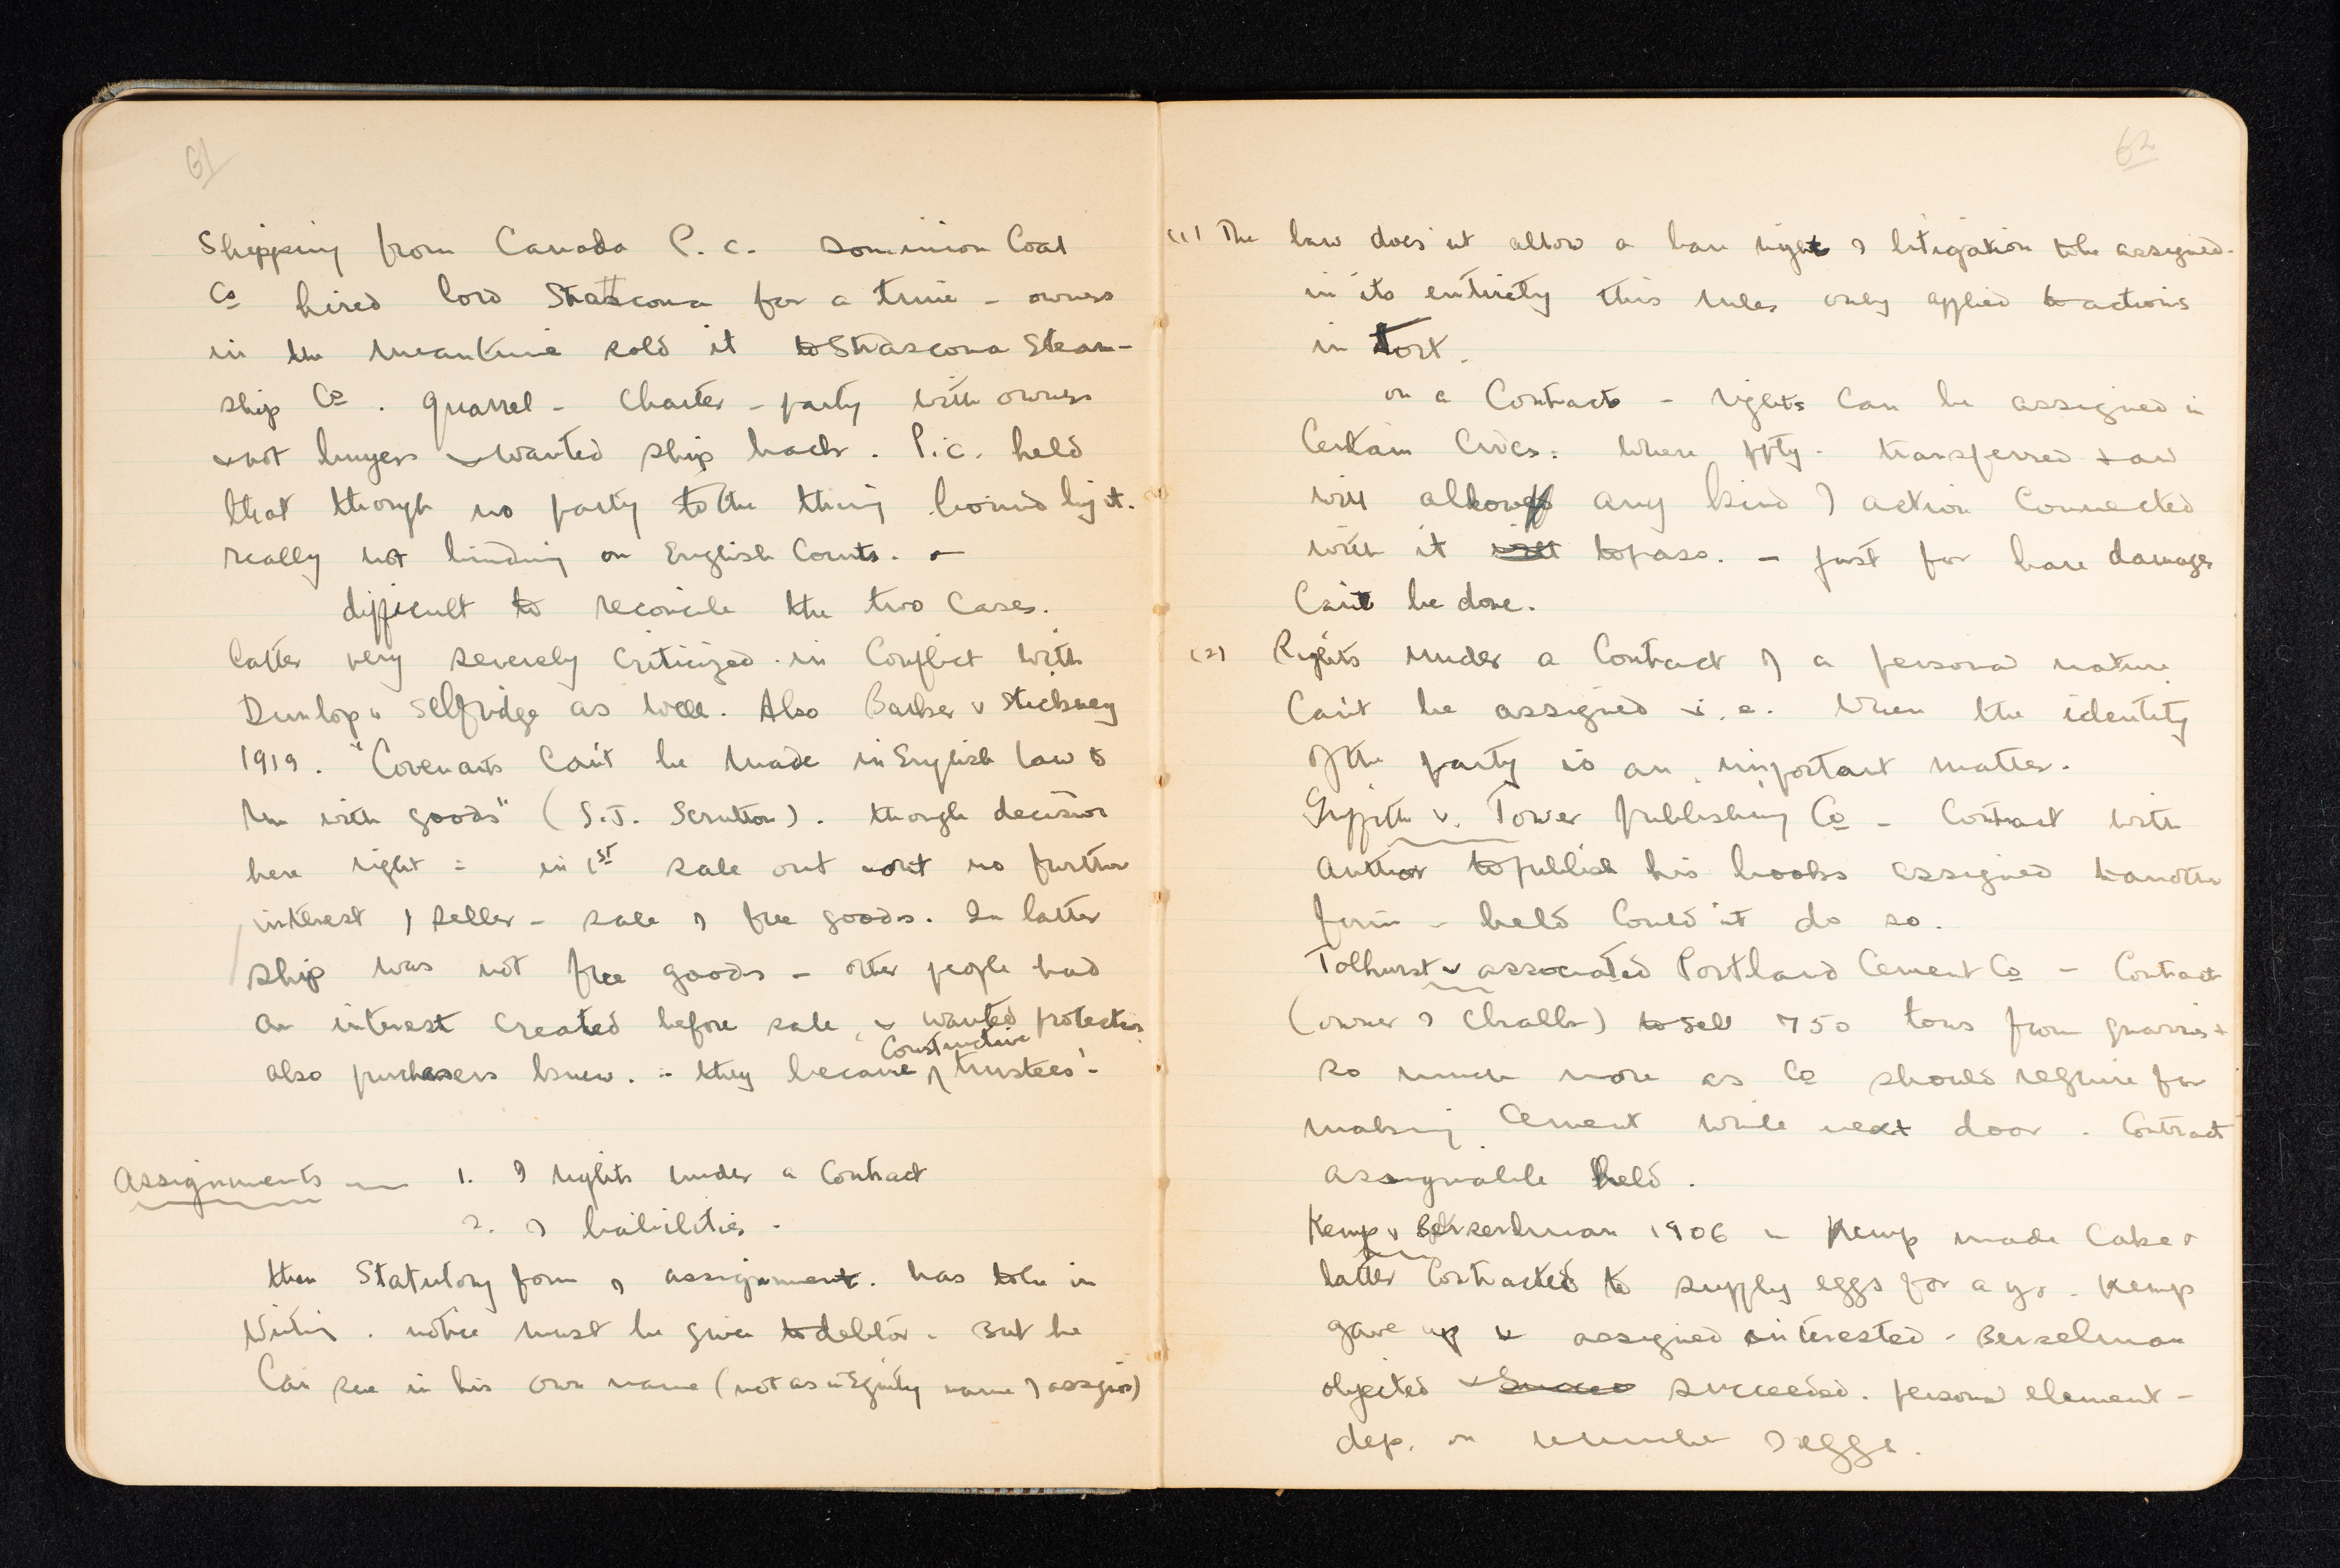 61
Shipping from Canada P.C. Dominion Coal
Co hired Lord Strathcona for a time - owners
in the meantime sold it to Strascona Steam-
ship Co. quarrel - Charter-party with owners
& not buyers & wanted ship back. P.C. held
that though no party to the thing bound by it.
really not binding on English Courts. -
difficult to reconcile the two cases.
Latter very severely criticized in conflict with
Dunlop v Selfridge as well. Also Barker v Stickney
1919. "Covenants can't be made in English law to
run with goods" (S.J. Scrutton). though decision
here right = in 1st sale out & out no further
interest of seller - sale of free goods. In latter
ship was not free goods - other people had
an interest created before sale, & wanted protection
also purchasers knew. ∴ they became constructive trustees.
Assignments — 1. of rights under a Contract
2. of liabilities.
then Statutory form of assignment. has to be in
writing. notice must be given to debtor. But he
can sue in his own name (not as in Equity name of assignor)
62
(1) The law does'nt allow a bare right of litigation to be assigned.
in its entirety this rules only applied to actions
in tort.
on a Contract - rights can be assigned in
certain circs: where ppty. transferred + law
will allow any kind of action connected
with it will to pass. - just for bare damages
Can't be done.
(2) Rights under a Contract of a personal nature
Can't be assigned i.e. when the identity
of the party is an important matter.
Griffith v. Tower Publishing Co - Contract with
author to publish his books assigned to another
firm - held Could'nt do so.
Tolhurst v associated Portland Cement Co - Contract
(owner of Chalk) to sell 750 tons from quarries +
so much more as Co should require for
making Cement while next door. Contract
assignable held.
Kemp v Berselman 1906 - Kemp made Cake &
latter Contracted to supply eggs for a yr. Kemp
gave up & assigned interested - Berselman
objected & Succee succeeded. personal element -
dep. on number of eggs.